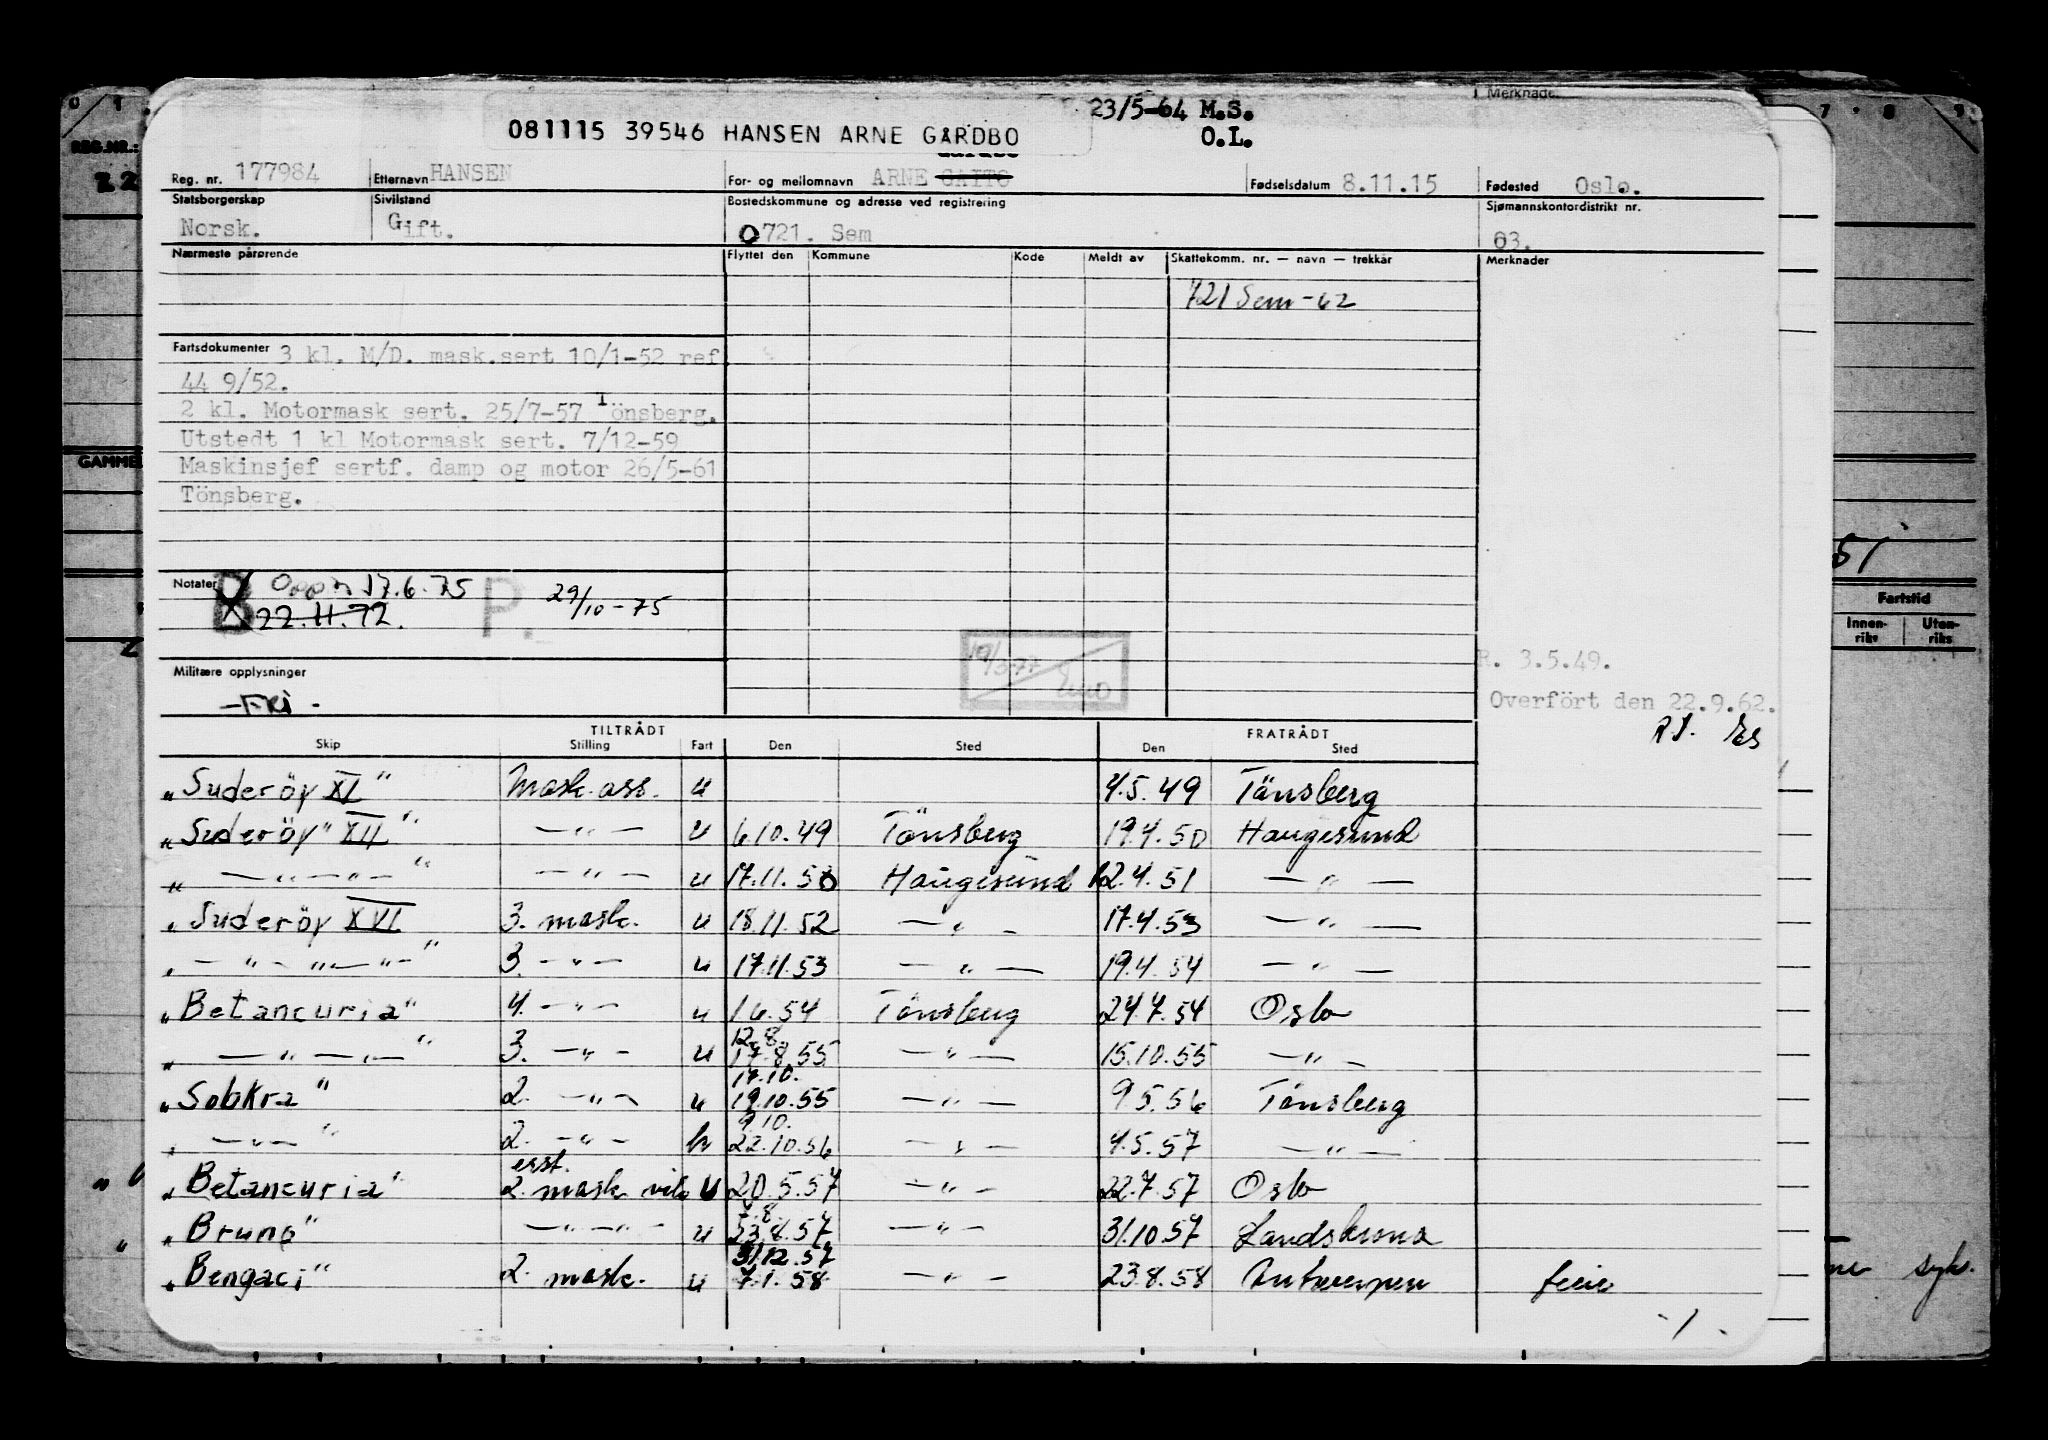 Merknader
23/5-64 M.S.
O.L.
081115 39546 HANSEN ARNE GARDBO
Reg. nr. 177984 Etternavn HANSEN For- og mellomnavn ARNE GAITO Fødselsdatum 8.11.15 Fødested Oslo.
Statsborgerskap Sivilstand Bostedskommune og adresse ved registrering Sjømannskontordistrikt nr.
Norsk. Gift. 0721. Sem 03.
Nærmeste pårørende Flyttet den Kommune Kode Meldt av Skattekomm. nr. — navn — trekkår Merknader
721 Sem-62
Fartsdokumenter 3 kl. M/D. mask.sert 10/1-52 ref.
44 9/52.
2 kl. Motormask sert. 25/7-57 Tönsberg.
Utstedt 1 kl Motormask sert. 7/12-59
Maskinsjef sertf. damp og motor 26/5-61
Tönsberg.
Notater B X 17.6.75 P. 29/10-75
22.11.72.
Militære opplysninger
-FRi-
R. 3.5.49.
Overfört den 22.9.62.
TILTRÅDT FRATRÅDT
Skip Stilling Fart Den Sted Den Sted
"Suderöy XI" Mask.ass. u 4.5.49 Tönsberg
"Suderöy" XII" —"— u 6.10.49 Tönsberg 19.4.50 Haugesund
" —"—"— " —"— u 17.11.50 Haugesund 12.4.51 —"—
"Suderöy XVI 3. mask. u 18.11.52 —"— 17.4.53 —"—
" —"—"—"— " 3. —"— u 17.11.53 —"— 19.4.54 —"—
"Betancuria" 4. —"— u 1.6.54 Tönsberg 24.7.54 Oslo
12.8.
" —"—"— " 3. —"— u 17.8.55 —"— 15.10.55 —"—
17.10.
"Solskra" 2. —"— u 19.10.55 —"— 9.5.56 Tönsberg
9.10.
" —"— " 2. —"— h 22.10.56 —"— 4.5.57 —"—
erst.
"Betancuria" 2. mask vik u 20.5.57 —"— 22.7.57 Oslo
"Bruno" —"—"— u 23.8.57 —"— 31.10.57 Landskrona
31.12.57
"Bengaci" 2. mask. u 7.1.58 —"— 23.8.58 Antwerpen ferie
-1-
REG.NR.:
22
GAMMEL
51
Fartstid
Innen-riks Uten-riks
syk.